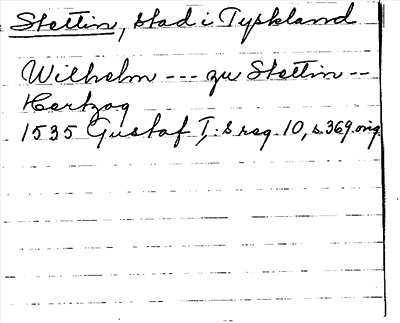 Stettin, stad i Tyskland
Wilhelm --- zu Stettin --
Hertzog
1535 Gustaf I:s reg. 10, s. 369. orig.